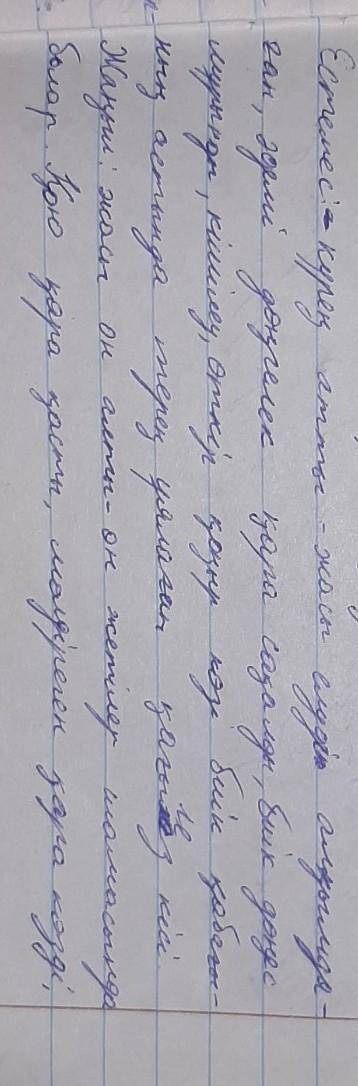 Естемес - күрең атты - жасы елуді алқымда-
ған, әдемі дөңгелек қара сақалды, биік дөңес
мұрынды, кішілеу, өткір қоңыр көзі биік қабағы-
ның астында терең ұялаған қағылез кісі.
Жақып: жасы он алты-он жетілер шамасында
болар. Қою қара қасты, мөлдіреген қара көзді,